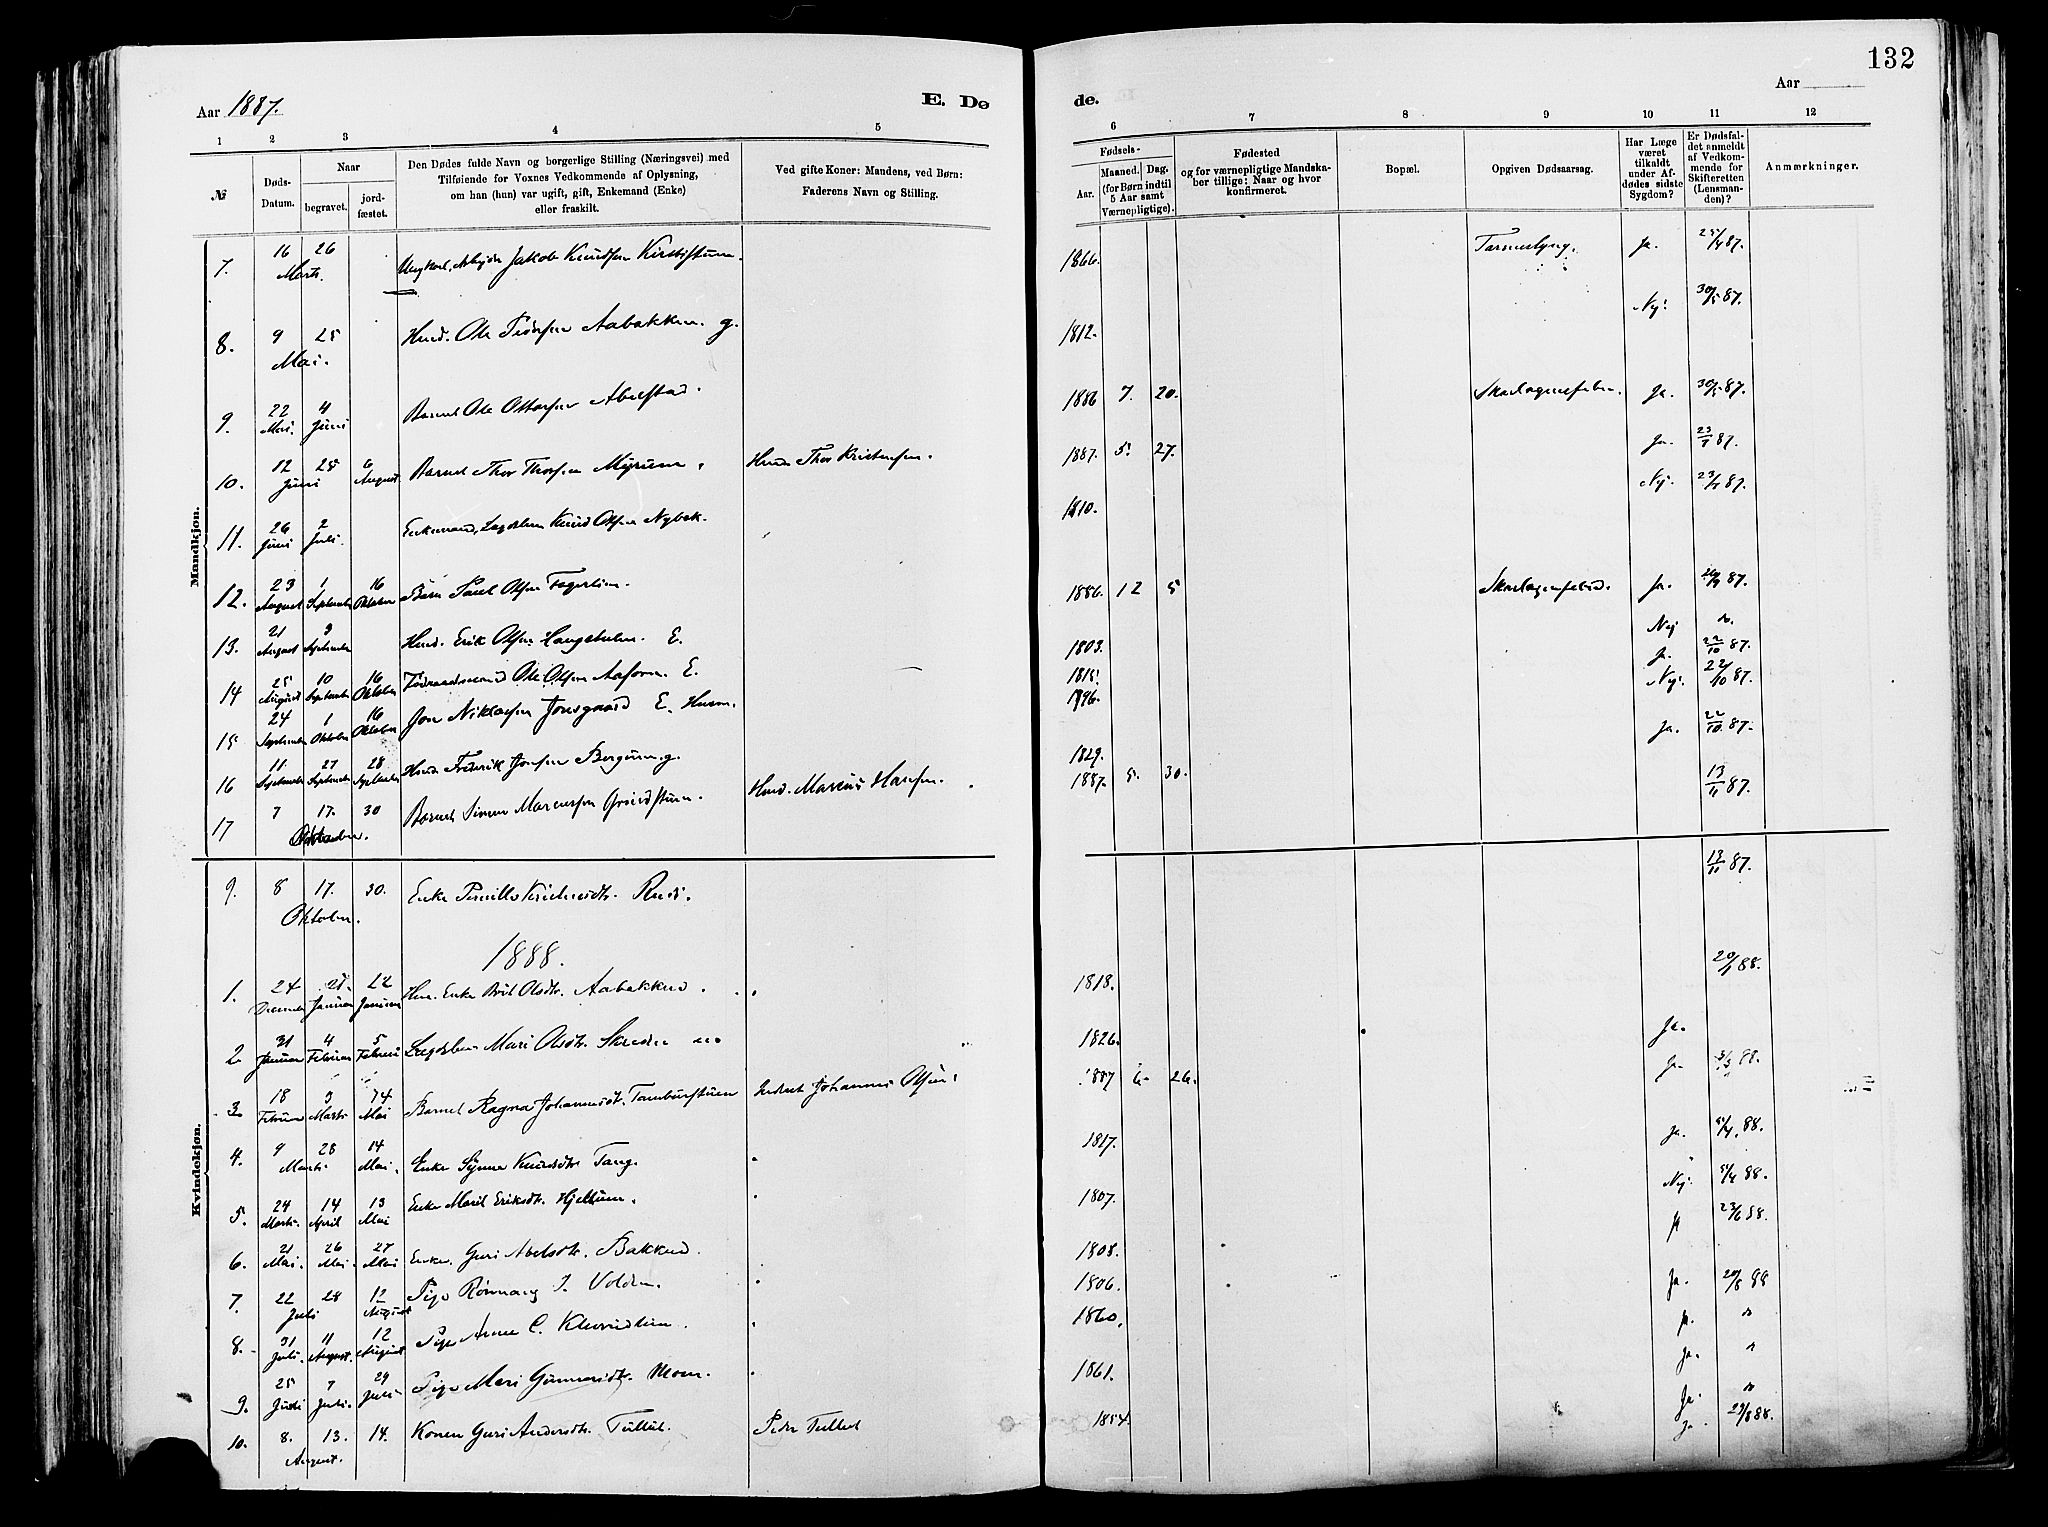 132
Aar 1887.
E. Dø
de.
Aar
1 2 3 4 5 6 7 8 9 10 11 12
№
Døds-Datum.
Naar
begravet.
jord-fæstet.
Den Dødes fulde Navn og borgerlige Stilling (Næringsvei) med
Tilføiende for Voxnes Vedkommende af Oplysning,
om han (hun) var ugift, gift, Enkemand (Enke)
eller fraskilt.
Ved gifte Koner: Mandens, ved Børn:
Faderens Navn og Stilling.
Fødsels-
Aar.
Maaned. Dag.
(for Børn indtil
5 Aar samt
Værnepligtige).
Fødested
og for værnepligtige Mandska-
ber tillige: Naar og hvor
konfirmeret.
Bopæl.
Opgiven Dødsaarsag.
Har Læge
været
tilkaldt
under Af-
dødes sidste
Sygdom?
Er Dødsfal-
det anmeldt
af Vedkom-
mende for
Skifteretten
(Lensman-
den)?
Anmærkninger.
Mandkjøn.
7. 16 26 Marts. Ungkarl, Arbeider Jakob Knudsen Kirstistuen. 1866. Ja.
8. 9 25 Mai. Husmd. Ole Pedersen Aabakken. g. 1812. Nej.
9. 22 Mai. 4 Juni Barnet Ole Ottersen Abelstad. 1886 7. 20. Skarlagensfeber. Ja.
10. 12 25 Juni 6 August Barnet Thor Thorsen Myrum. Husmd. Thor Kristensen. 1887. 5. 27. Ja.
11. 26 Juni 2 Juli. Enkemand, Lægdslem Knud Olsen Nybak. 1810. Nej.
12. 23 August 1 September 16 Oktober Barn Paul Olsen Fagerlien. 1886. 12 5 Skarlagensfeber. Ja.
13. 21 August 3 September Husmd. Erik Olsen Haugsholen. E. 1803. Nej
14 25 August 10 September 16 Oktober Føderaadsmand Ole Olsen E. 1815. Ja.
15 24 September 1 Oktober 16 Oktober Jon Niklasen Jonsgaard E. Husm. 1796. Nej.
16 11 September 27 September 28 September Husmd. Frederik Jonsen Bergum. g. 1829. Ja.
17 7 17. 30 Oktober. Barnet Simen Marcussen Grindstuen. Husmd. Marcus Hansen. 1887. 5. 30. 13/11 87.
9. 8 17. 30. Oktober. Enke Pernille Rudi. 13/11 87.
1888.
Kvindekjøn.
1. 24 December 21. Januar 22 Januar Hus. Enke Brit Olsdtr. Aabakken. 1818. 20/1 88.
2 31 Januar 4 Februar 5 Februar Lægdslem Mari Olsdtr. Skreden 1826. Ja.
3. 18 Februar 3 Marts 14 Mai Barnet Ragna Johannesdtr. Tamburstuen Johannes Olsen 1887 6. 26. Ja.
4. 9 28 Marts. 14 Mai. Enke Synne Knudsdtr. Tang. 1817. Ja.
5. 24 Marts. 14 April 13 Mai Enke Marit Eriksdtr. Hjeltum. 1807. Nej.
6. 21 Mai. 26 Mai. 27 Mai Enke. Guri Abelsdtr. Bakken. 1808. Ja 23/6 88.
7. 22 28 Juli 12 August Pige Rønnaug I. Volden. 1806. Ja. 20/8 88
8. 31 Juli. 11 August. 12 August Pige Anne C. 1860. Ja.
9. 25 Juni 7 Juli. 29 Juli Pige Mari Gunnarsdtr. Moen. 1861. Ja.
10. 8. 13. 14. August. Konen Guri Andersdtr. Tullut. Peder Tullut 1854. Ja.